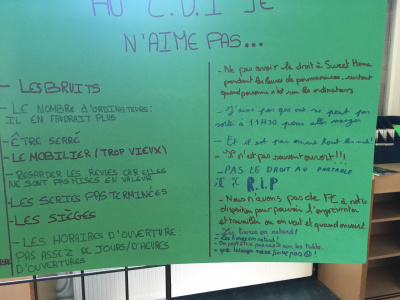 AU C.D.I JE
N'AIME PAS...
- LES BRUITS
- LE NOMBRE D'ORDINATEURS:
IL EN FAUDRAIT PLUS
- ÊTRE SERRÉ
- LE MOBILIER (TROP VIEUX)
- REGARDER LES REVUES CAR ELLES
NE SONT PAS MISES EN VALEUR
- LES SERIES PAS TERMINÉES
- LES SIÈGES
- LES HORAIRES D'OUVERTURE:
PAS ASSEZ DE JOURS/D'HEURES
D'OUVERTURES
- Ne pas avoir le droit à Sweet Home
pendant les heures de permanences, surtout
quand personne n'est sur les ordinateurs
- J'aime pas qu'on ne peut pas
à 11H30 pour aller manger
- Et il est pas ouvert tout le
- Il n'est pas souvent ouvert!!!
- PAS LE DROIT AU PORTABLE
R.I.P
- Nous n'avons pas de PC à notre
disposition pour pouvoir
travailler ou on veut et quand on veut
- Les livres en retard!